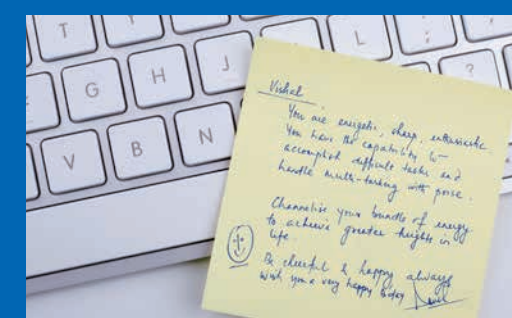 T
G H J L : ?
V B N
Vishal
You are energetic, sharp, enthusiastic
You have the capability to
accomplish difficult tasks and
handle multi-tasking with poise.
Channelise your bundle of energy
to achieve greater heights in
life.
Be cheerful & happy always
Wish you a very happy b'day